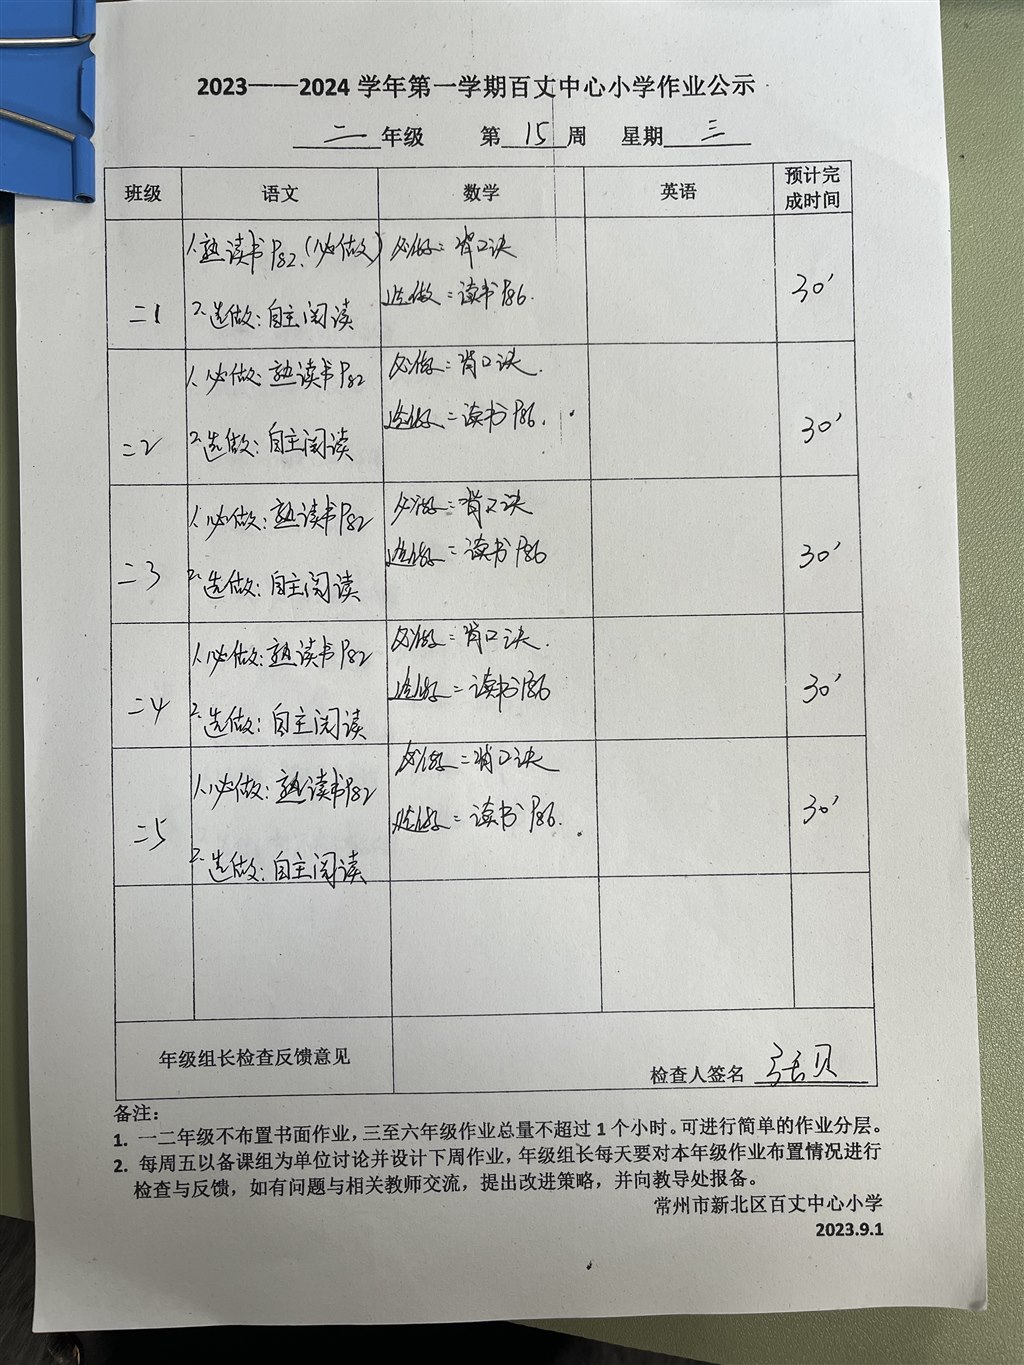 2023——2024 学年第一学期百丈中心小学作业公示
二 年级 第 15 周 星期 三
班级 语文 数学 英语 预计完成时间
二1
1.熟读书P82.(必做)
2.选做:自主阅读
必做:背口诀
选做:读书P86.
30'
二2
1.必做:熟读书P82
2.选做:自主阅读
必做:背口诀.
选做:读书P86.
30'
二3
1.必做:熟读书P82
2.选做:自主阅读
必做:背口诀
选做:读书P86
30'
二4
1.必做:熟读书P82
2.选做:自主阅读
必做:背口诀.
选做:读书P86
30'
二5
1.必做:熟读书P82
2.选做:自主阅读
必做:背口诀
选做:读书P86.
30'
年级组长检查反馈意见
检查人签名 张贝
备注:
1. 一二年级不布置书面作业,三至六年级作业总量不超过 1 个小时。可进行简单的作业分层。
2. 每周五以备课组为单位讨论并设计下周作业,年级组长每天要对本年级作业布置情况进行
检查与反馈,如有问题与相关教师交流,提出改进策略,并向教导处报备。
常州市新北区百丈中心小学
2023.9.1